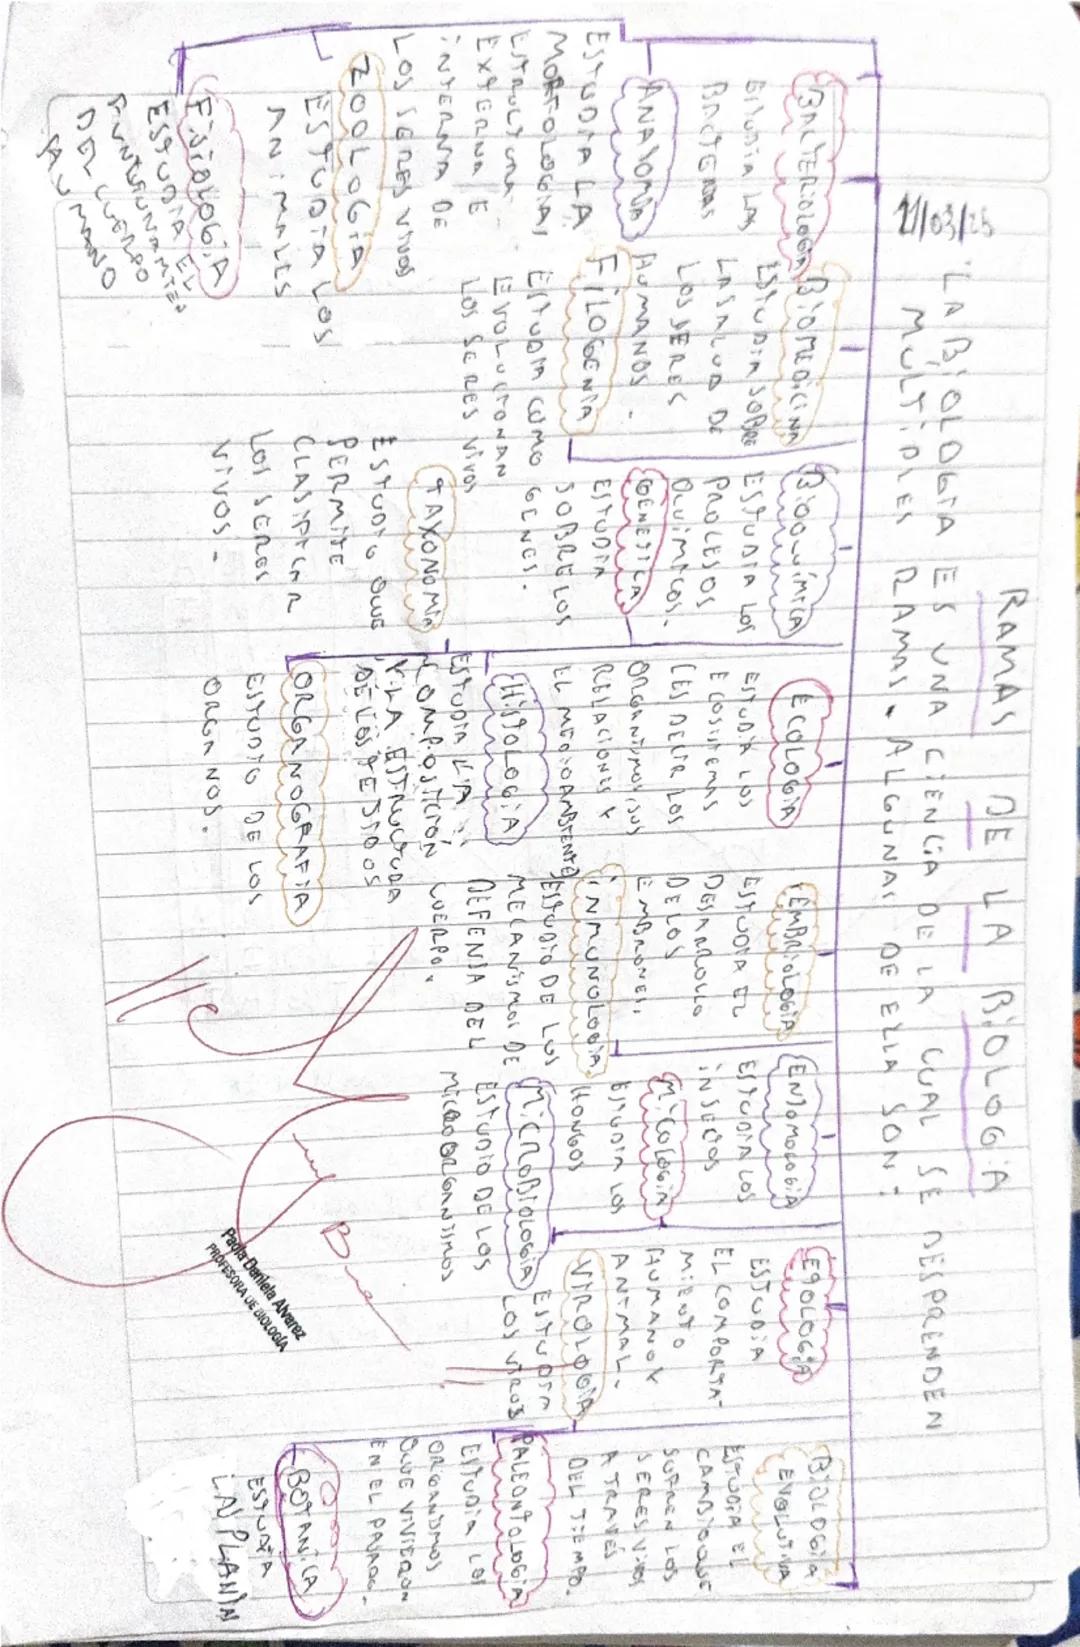 RAMAS DE LA BiOLOGiA
11/03/25
"LA BiOLOGiA ES UNA CiENCiA DE LA CUAL SE DESPRENDEN
MÚLTiPLES RAMAS. ALGUNAS DE ELLA SON:
BACTERiOLOGiA
ESTUDiA LAS
BACTERIAS
BiOMEDiCiNA
ESTUDiA SOBRE
LA SALUD DE
LOS SERES
HUMANOS.
BiOQUíMiCA
ESTUDiA LOS
PROCESOS
QUíMiCOS.
ECOLOGiA
ESTUDiA LOS
ECOSiSTEMAS
ES DECIR LOS
ORGANiSMOS SUS
RELACiONES Y
EL MEDiO AMBiENTE
EMBRiOLOGiA
ESTUDiA EL
DESARROLLO
DE LOS
EMBRiONES.
ENTOMOLOGiA
ESTUDiA LOS
iNSECTOS
ETOLOGíA
ESTUDiA
EL COMPORTA-
MiENTO
HUMANO Y
ANiMAL.
BiOLOGiA
EVOLUTiVA
ESTUDiA EL
CAMBiO QUE
SUFREN LOS
SERES ViVOS
A TRAVÉS
DEL TiEMPO.
ANATOMiA
ESTUDiA LA
MORFOLOGiA
ESTRUCTURA
EXTERNA E
iNTERNA DE
LOS SERES ViVOS
FiLOGENiA
ESTUDiA COMO
EVOLUCiONAN
LOS SERES ViVOS
GENETiCA
ESTUDiA
SOBRE LOS
GENES.
HiSTOLOGiA
ESTUDiA LA
COMPOSiCiÓN
Y LA ESTRUCTURA
DE LOS TEJiDOS
iNMUNOLOGiA
ESTUDiO DE LOS
MECANiSMOS DE
DEFENSA DEL
CUERPO.
MiCOLOGiA
ESTUDiA LOS
HONGOS
MiCROBiOLOGiA
ESTUDiO DE LOS
MiCROORGANiSMOS
ViROLOGiA
ESTUDiA
LOS ViRUS
PALEONTOLOGiA
ESTUDiA LOS
ORGANiSMOS
QUE ViViERON
EN EL PASADO.
ZOOLOGiA
ESTUDiA LOS
ANiMALES
TAXONOMiA
ESTUDiO QUE
PERMiTE
CLASiFiCAR
LOS SERES
ViVOS.
ORGANOGRAFiA
ESTUDiO DE LOS
ORGANOS.
BOTANiCA
ESTUDiA
LAS PLANTAS
FiSiOLOGiA
ESTUDiA EL
DEL CUERPO
Paola Daniela Alvarez
PROFESORA DE BIOLOGÍA